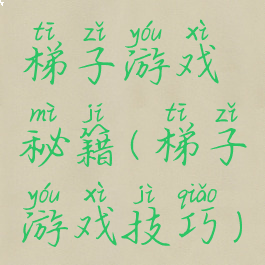 tī zǐ yóu xì
梯子游戏
mì jí tī zǐ
秘籍(梯子
yóu xì jì qiǎo
游戏技巧)